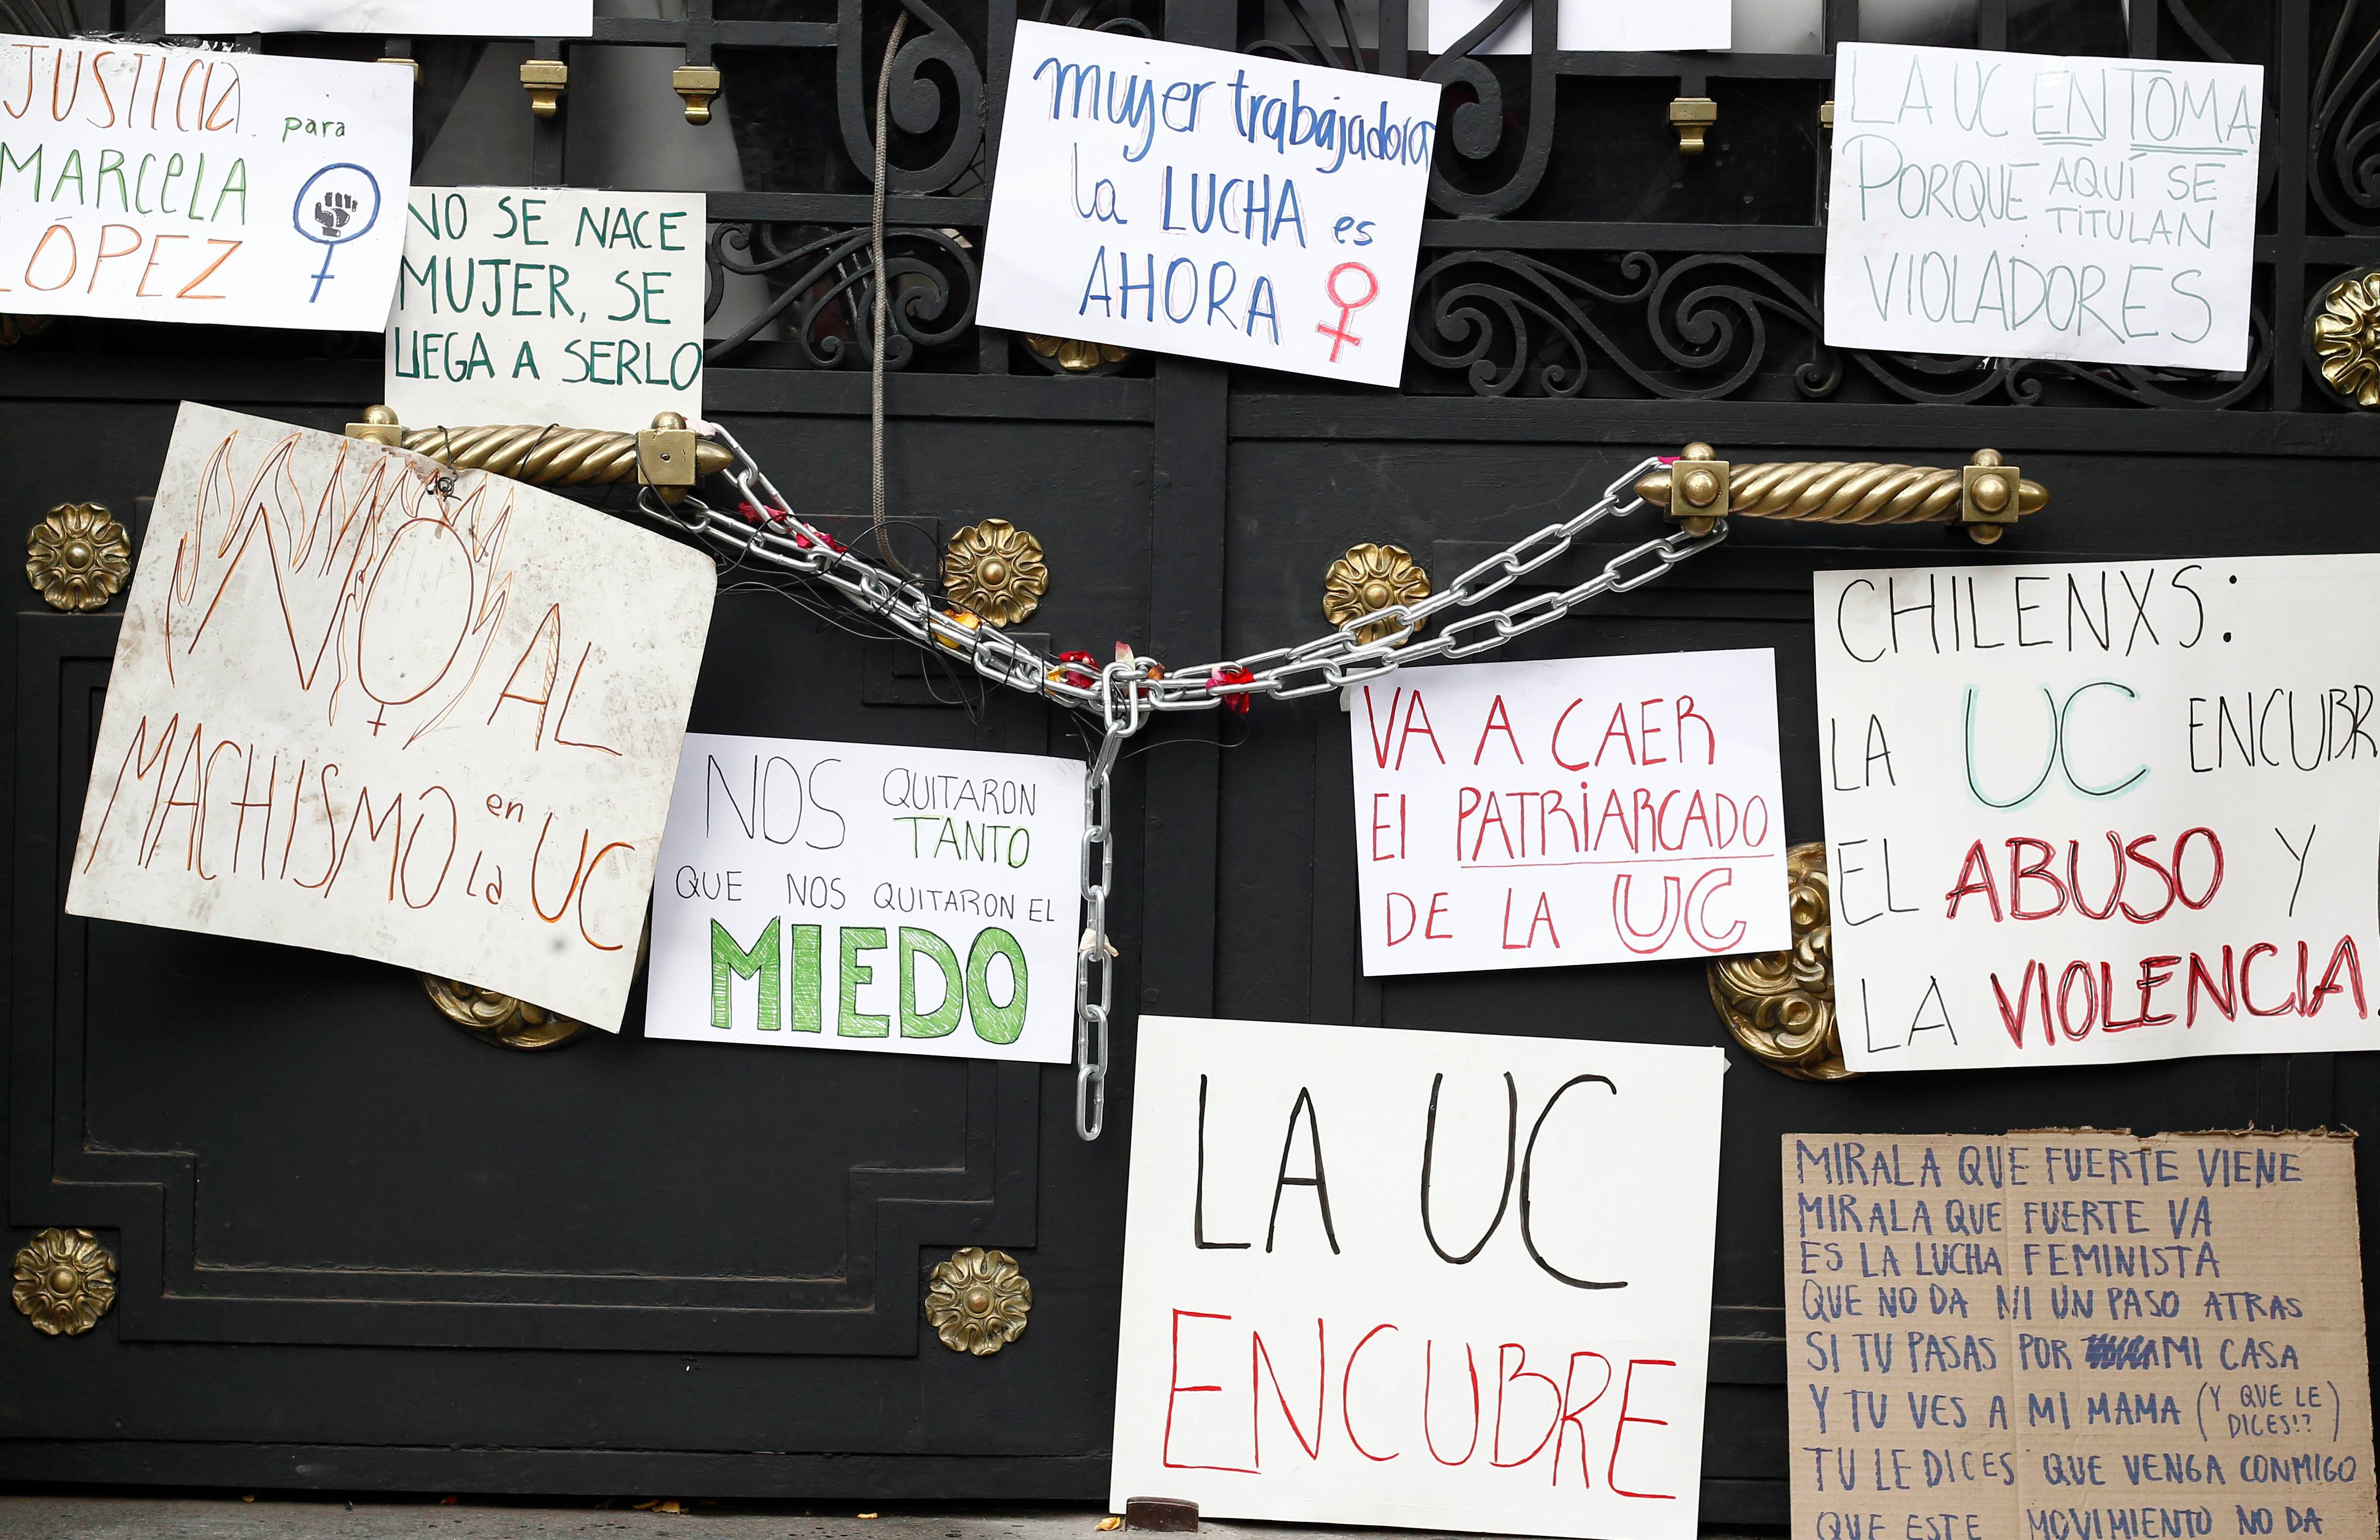 JUSTICIA para
MARCELA
LÓPEZ
NO SE NACE
MUJER, SE
LLEGA A SERLO
mujer trabajadora
la LUCHA es
AHORA
LA UC EN TOMA
PORQUE AQUÍ SE
TITULAN
VIOLADORES
NO AL
MACHISMO en
la UC
NOS QUITARON
TANTO
QUE NOS QUITARON EL
MIEDO
VA A CAER
El PATRiARCADO
DE LA UC
CHILENXS:
LA UC ENCUBR
EL ABUSO Y
LA VIOLENCIA.
LA UC
ENCUBRE
MIRALA QUE FUERTE VIENE
MIRALA QUE FUERTE VA
ES LA LUCHA FEMINISTA
QUE NO DA NI UN PASO ATRAS
SI TU PASAS POR MI CASA
Y TU VES A MI MAMA (Y QUE LE
DICES!?)
TU LE DICES QUE VENGA CONMIGO
QUE ESTE MOVIMIENTO NO DA